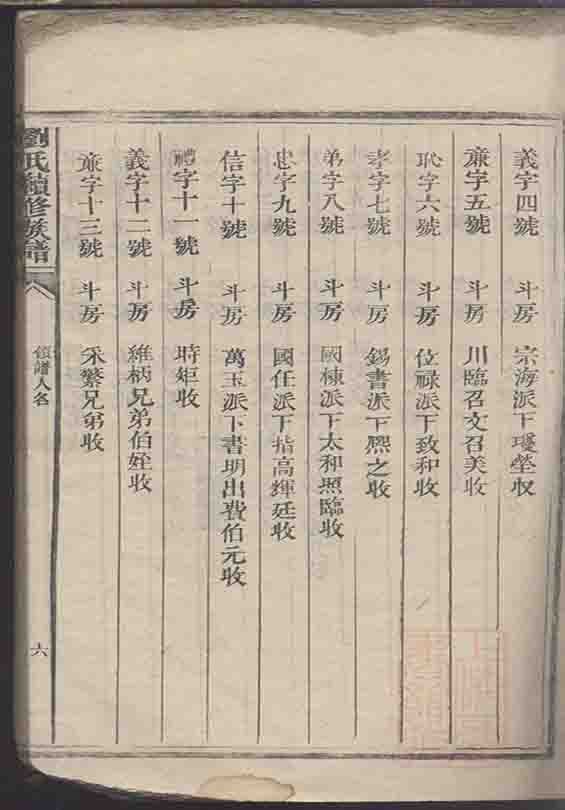 義字四號 斗房 宗海派下瓊瑩收
廉字五號 斗房 川臨召文召美收
恥字六號 斗房 位祿派下致和收
孝字七號 斗房 錫書派下熙之收
弟字八號 斗房 國棟派下太和照臨收
忠字九號 斗房 國任派下指高輝廷收
信字十號 斗房 萬玉派下書明出費伯元收
禮字十一號 斗房 時矩收
義字十二號 斗房 維柄兄弟伯姪收
廉字十三號 斗房 采繁兄弟收
劉氏續修族譜 領譜人名 六